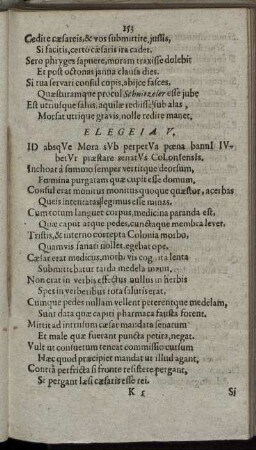 153
Cedite cæsareis, & vos submittite, jussis,
Si facitis, certò cæsaris ira cadet.
Sero phryges sapuere, moram traxisse dolebit
Et post octonas janna clausa dies.
Si tua servari consul copis, abjice fasces,
Quæsturamque procul Schnitzeler esse jube
Est utriusque salus, aquilæ rediisse sub alas,
Morsat utrique gravis, nolle redire manet,
ELEGEIA V,
ID absqVe Mora sVb perpetVa pœna bannI IV-
betVr præstare senatVs CoLonIensIs.
Inchoat à summo semper vertitque deorsum,
Fœmina purgatum quæ cupit esse domum,
Consul erat monitus monitus quoque quæstor, acerbas
Queis intentatas legimus esse minas.
Cum totum languet corpus, medicina paranda est.
Quæ caput atque pedes, cunctaque membra levet.
Tristis, & interno correpta Colonia morbo,
Quamvis sanari nollet, egebat ope.
Cæsar erat medicus, morbi vis cognita lenta
Submittebatur tarda medela virum.
Non erat in verbis effectus nullus in herbis
Spes in verberibus tota salutis erat.
Cumque pedes nullam vellent peterentque medelam,
Sunt data quæ capiti pharmaca fausta forent.
Mittit ad intrusum cæsar mandata senatum
Et male quæ fuerant puncta petira, negat.
Vult ut consuetum teneat commissio cursum
Hæc quod præcipiet mandat ut illud agant,
Contrà perfricta si fronte resistere pergant,
Si pergant læsi cæsaris esse rei.
K 5 Si